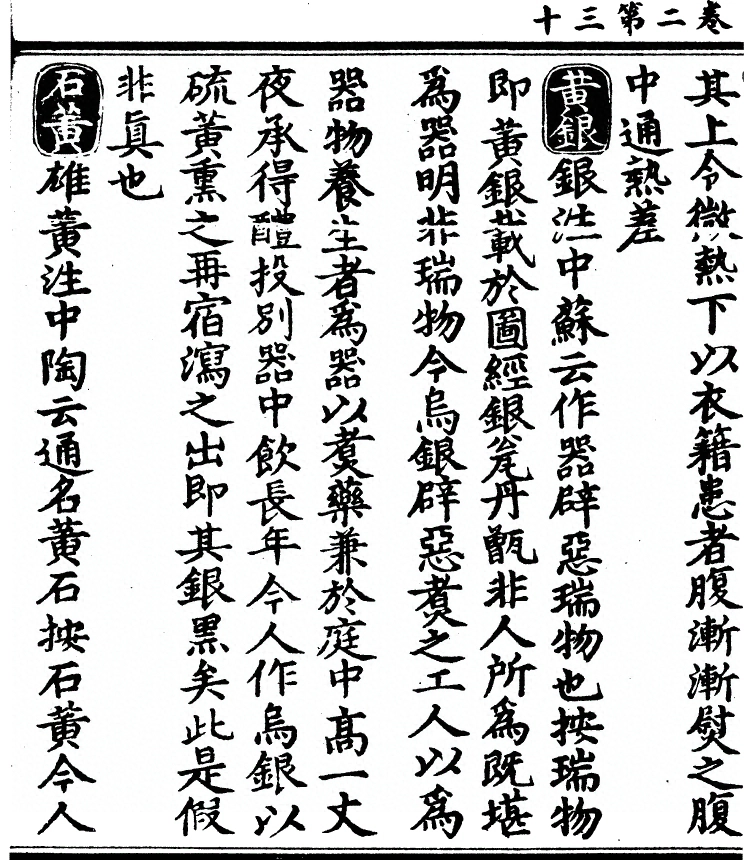 卷二第三十
其上令微熱下以衣籍患者腹漸漸熨之腹
中通熱差
黃銀銀注中蘇云作器辟惡瑞物也按瑞物
即黃銀載於圖經銀瓮丹甑非人所爲既堪
爲器明非瑞物今烏銀辟惡煑之工人以爲
器物養生者爲器以煑藥兼於庭中高一丈
夜承得醴投別器中飲長年今人作烏銀以
硫黃熏之再宿瀉之出即其銀黑矣此是假
非眞也
石黃雄黃注中陶云通名黃石按石黃今人